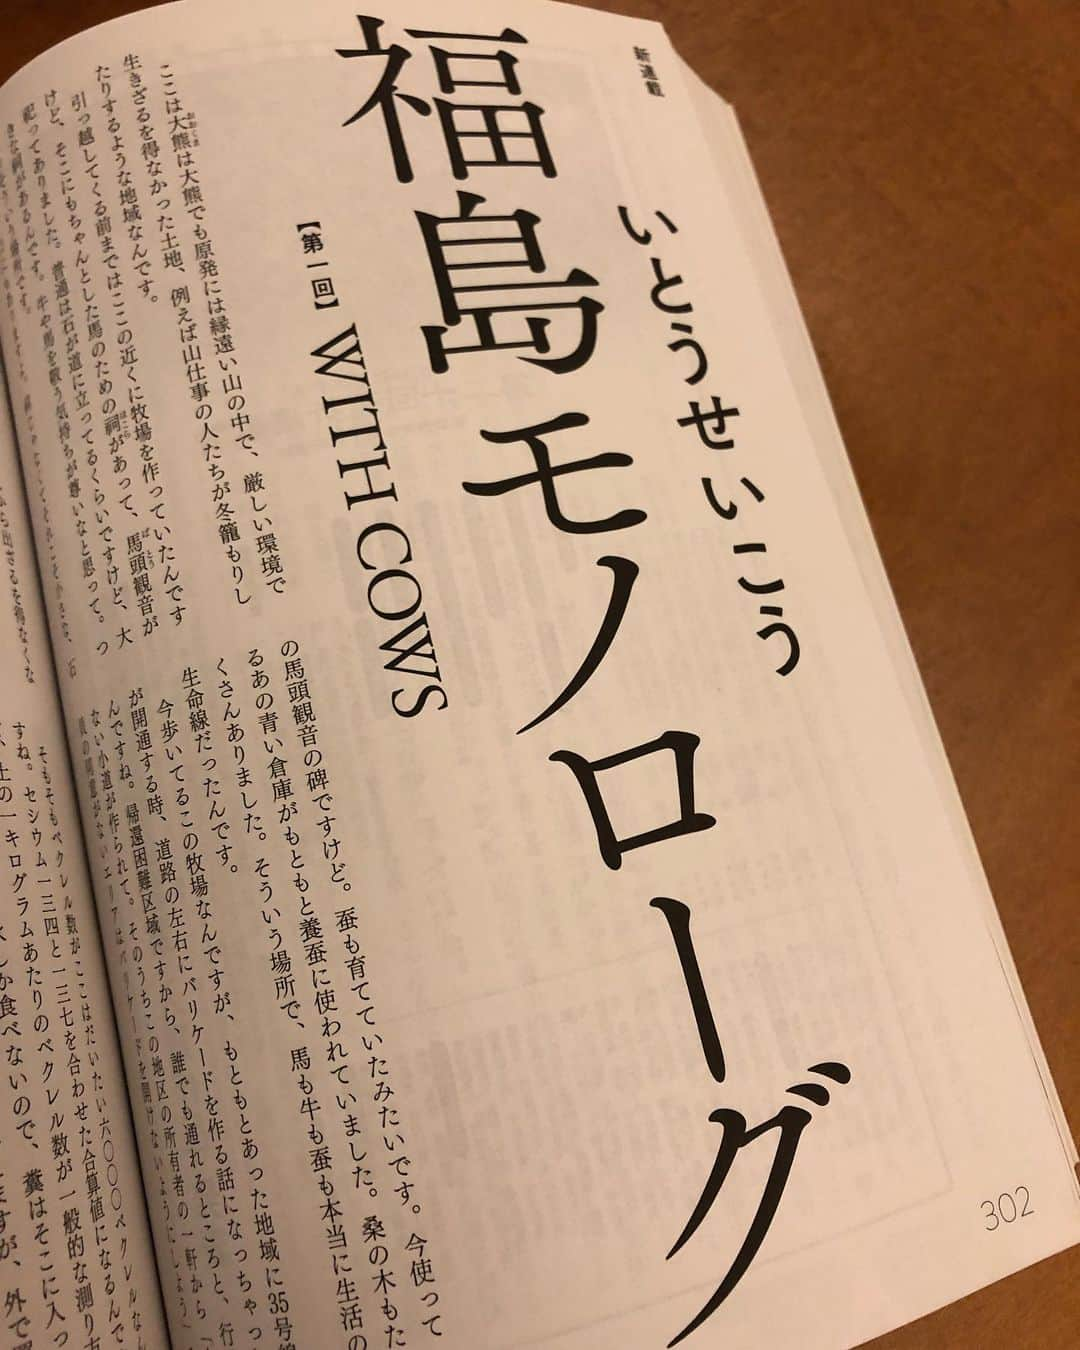 新連載
いとうせいこう
福島モノローグ
【第一回】WITH COWS
ここは大熊は大熊でも原発には縁遠い山の中で、厳しい環境で
生きざるを得なかった土地、例えば山仕事の人たちが冬籠もりし
たりするような地域なんです。
引っ越してくる前まではここの近くに牧場を作っていたんです
けど、そこにもちゃんとした馬のための祠があって、馬頭観音が
祀ってありました。普通は石が道に立ってるくらいですけど、大
きな祠があるんです。牛や馬を敬う気持ちが尊いなと思って。っ
の馬頭観音の碑ですけど。蚕も育てていたみたいです。今使って
るあの青い倉庫がもともと養蚕に使われていました。桑の木もた
くさんありました。そういう場所で、馬も牛も蚕も本当に生活の
生命線だったんです。
今歩いてるこの牧場なんですが、もともとあった地域に35号線
が開通する時、道路の左右にバリケードを作る話になっちゃっ
んですね。帰還困難区域ですから、誰でも通れるところと、行
ない小道が作られて。そのうちこの地区の所有者の一軒から
員の同意がないエリアはバリケードを開けないようにしよう」
そもそもベクレル数がここはだいたい六〇〇〇ベクレルなん
すね。セシウム一三四と一三七を合わせた合算値になるんで
土の一キログラムあたりのベクレル数が一般的な測り方
しか食べないので、糞はそこに入っ
ますが、外で
302